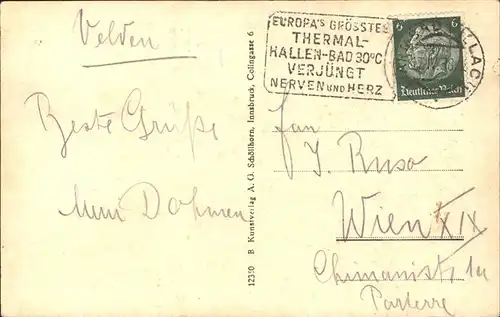 Velden
Beste Grüße
Dohmen
EUROPA'S GRÖSSTES
THERMAL-
HALLEN-BAD 30°C
VERJÜNGT
NERVEN UND HERZ
6 6
Deutsches Reich
LACH
12330 B Kunstverlag A. G. Schöllhorn, Innsbruck, Colingasse 6
J. Ruso
Wien XIX
Chimanistr 1a
Parterre